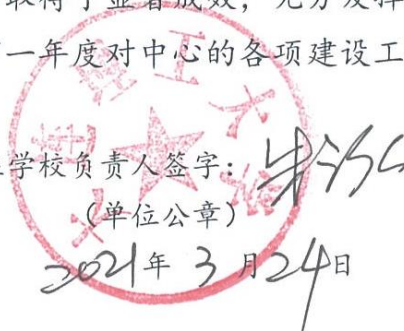 取得了显著成效，充分发挥
一年度对中心的各项建设工
学校负责人签字：
（单位公章）
2021年 3 月24日